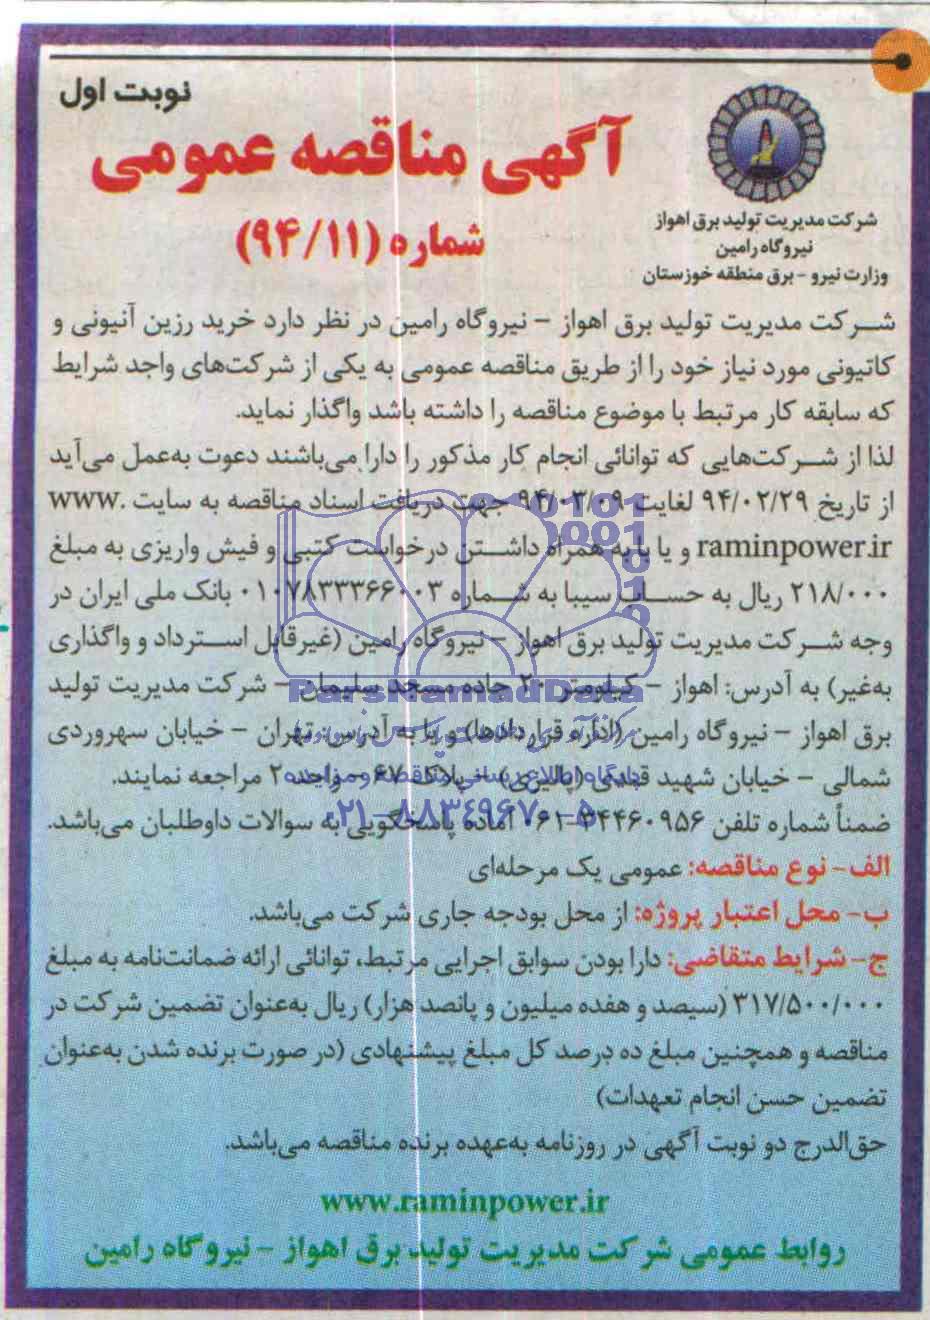 نوبت اول
آگهی مناقصه عمومی
شماره (۹۴/۱۱)
شرکت مدیریت تولید برق اهواز
نیروگاه رامین
وزارت نیرو - برق منطقه خوزستان
شرکت مدیریت تولید برق اهواز – نیروگاه رامین در نظر دارد خرید رزین آنیونی و
کاتیونی مورد نیاز خود را از طریق مناقصه عمومی به یکی از شرکت‌های واجد شرایط
که سابقه کار مرتبط با موضوع مناقصه را داشته باشد واگذار نماید.
لذا از شرکت‌هایی که توانائی انجام کار مذکور را دارا می‌باشند دعوت به‌عمل می‌آید
از تاریخ ۹۴/۰۲/۲۹ لغایت ۹۴/۰۳/۰۹ جهت دریافت اسناد مناقصه به سایت www.
raminpower.ir و یا با به همراه داشتن درخواست کتبی و فیش واریزی به مبلغ
۲۱۸/۰۰۰ ریال به حساب سیبا به شماره ۰۱۰۷۸۳۳۳۶۶۰۰۳ بانک ملی ایران در
وجه شرکت مدیریت تولید برق اهواز – نیروگاه رامین (غیرقابل استرداد و واگذاری
به‌غیر) به آدرس: اهواز – کیلومتر ۲۰ جاده مسجد سلیمان – شرکت مدیریت تولید
برق اهواز – نیروگاه رامین (اداره قراردادها) و یا به آدرس: تهران – خیابان سهروردی
شمالی – خیابان شهید قندی (پالیزی) – پلاک ۶۷ – واحد ۲ مراجعه نمایند.
ضمناً شماره تلفن ۳۴۴۶۰۹۵۶-۰۶۱ آماده پاسخگویی به سوالات داوطلبان می‌باشد.
الف- نوع مناقصه: عمومی یک مرحله‌ای
ب- محل اعتبار پروژه: از محل بودجه جاری شرکت می‌باشد.
ج- شرایط متقاضی: دارا بودن سوابق اجرایی مرتبط، توانائی ارائه ضمانت‌نامه به مبلغ
۳۱۷/۵۰۰/۰۰۰ (سیصد و هفده میلیون و پانصد هزار) ریال به‌عنوان تضمین شرکت در
مناقصه و همچنین مبلغ ده درصد کل مبلغ پیشنهادی (در صورت برنده شدن به‌عنوان
تضمین حسن انجام تعهدات)
حق‌الدرج دو نوبت آگهی در روزنامه به‌عهده برنده مناقصه می‌باشد.
www.raminpower.ir
روابط عمومی شرکت مدیریت تولید برق اهواز - نیروگاه رامین
ParsNamadData
پایگاه اطلاع رسانی مناقصه و مزایده
۰۲۱-۸۸۳۴۹۶۷۰-۵